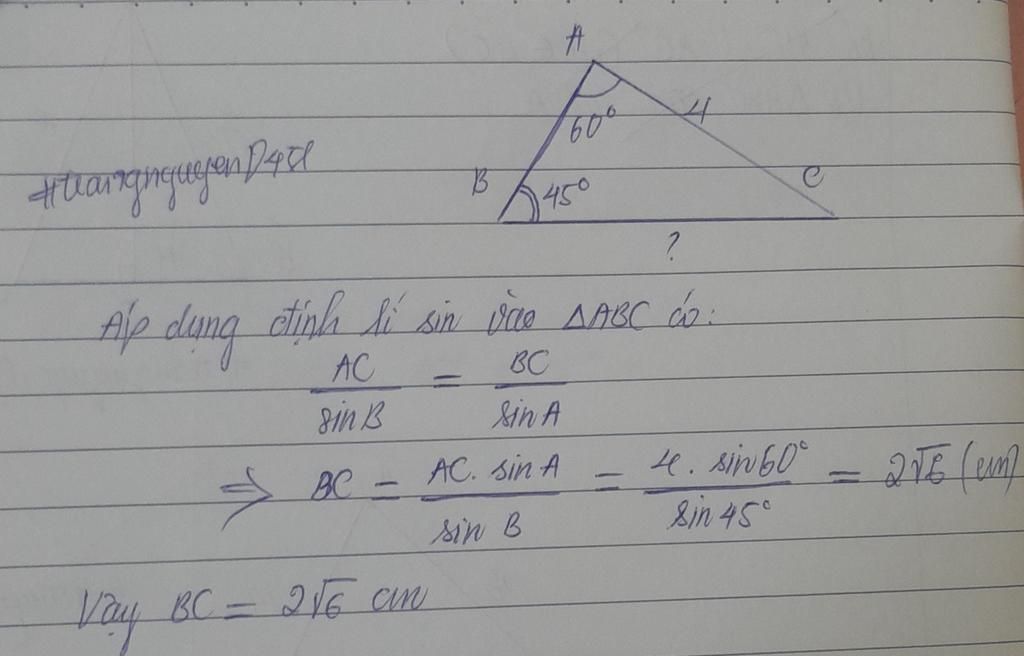 A
60°
4
#trangnguyenD4H
B
45°
C
?
Áp dụng định lí sin vào ΔABC có:
AC/sinB = BC/sinA
⇒ BC = AC.sinA/sin B = 4.sin60°/sin45° = 2√6 (cm)
Vậy BC = 2√6 cm